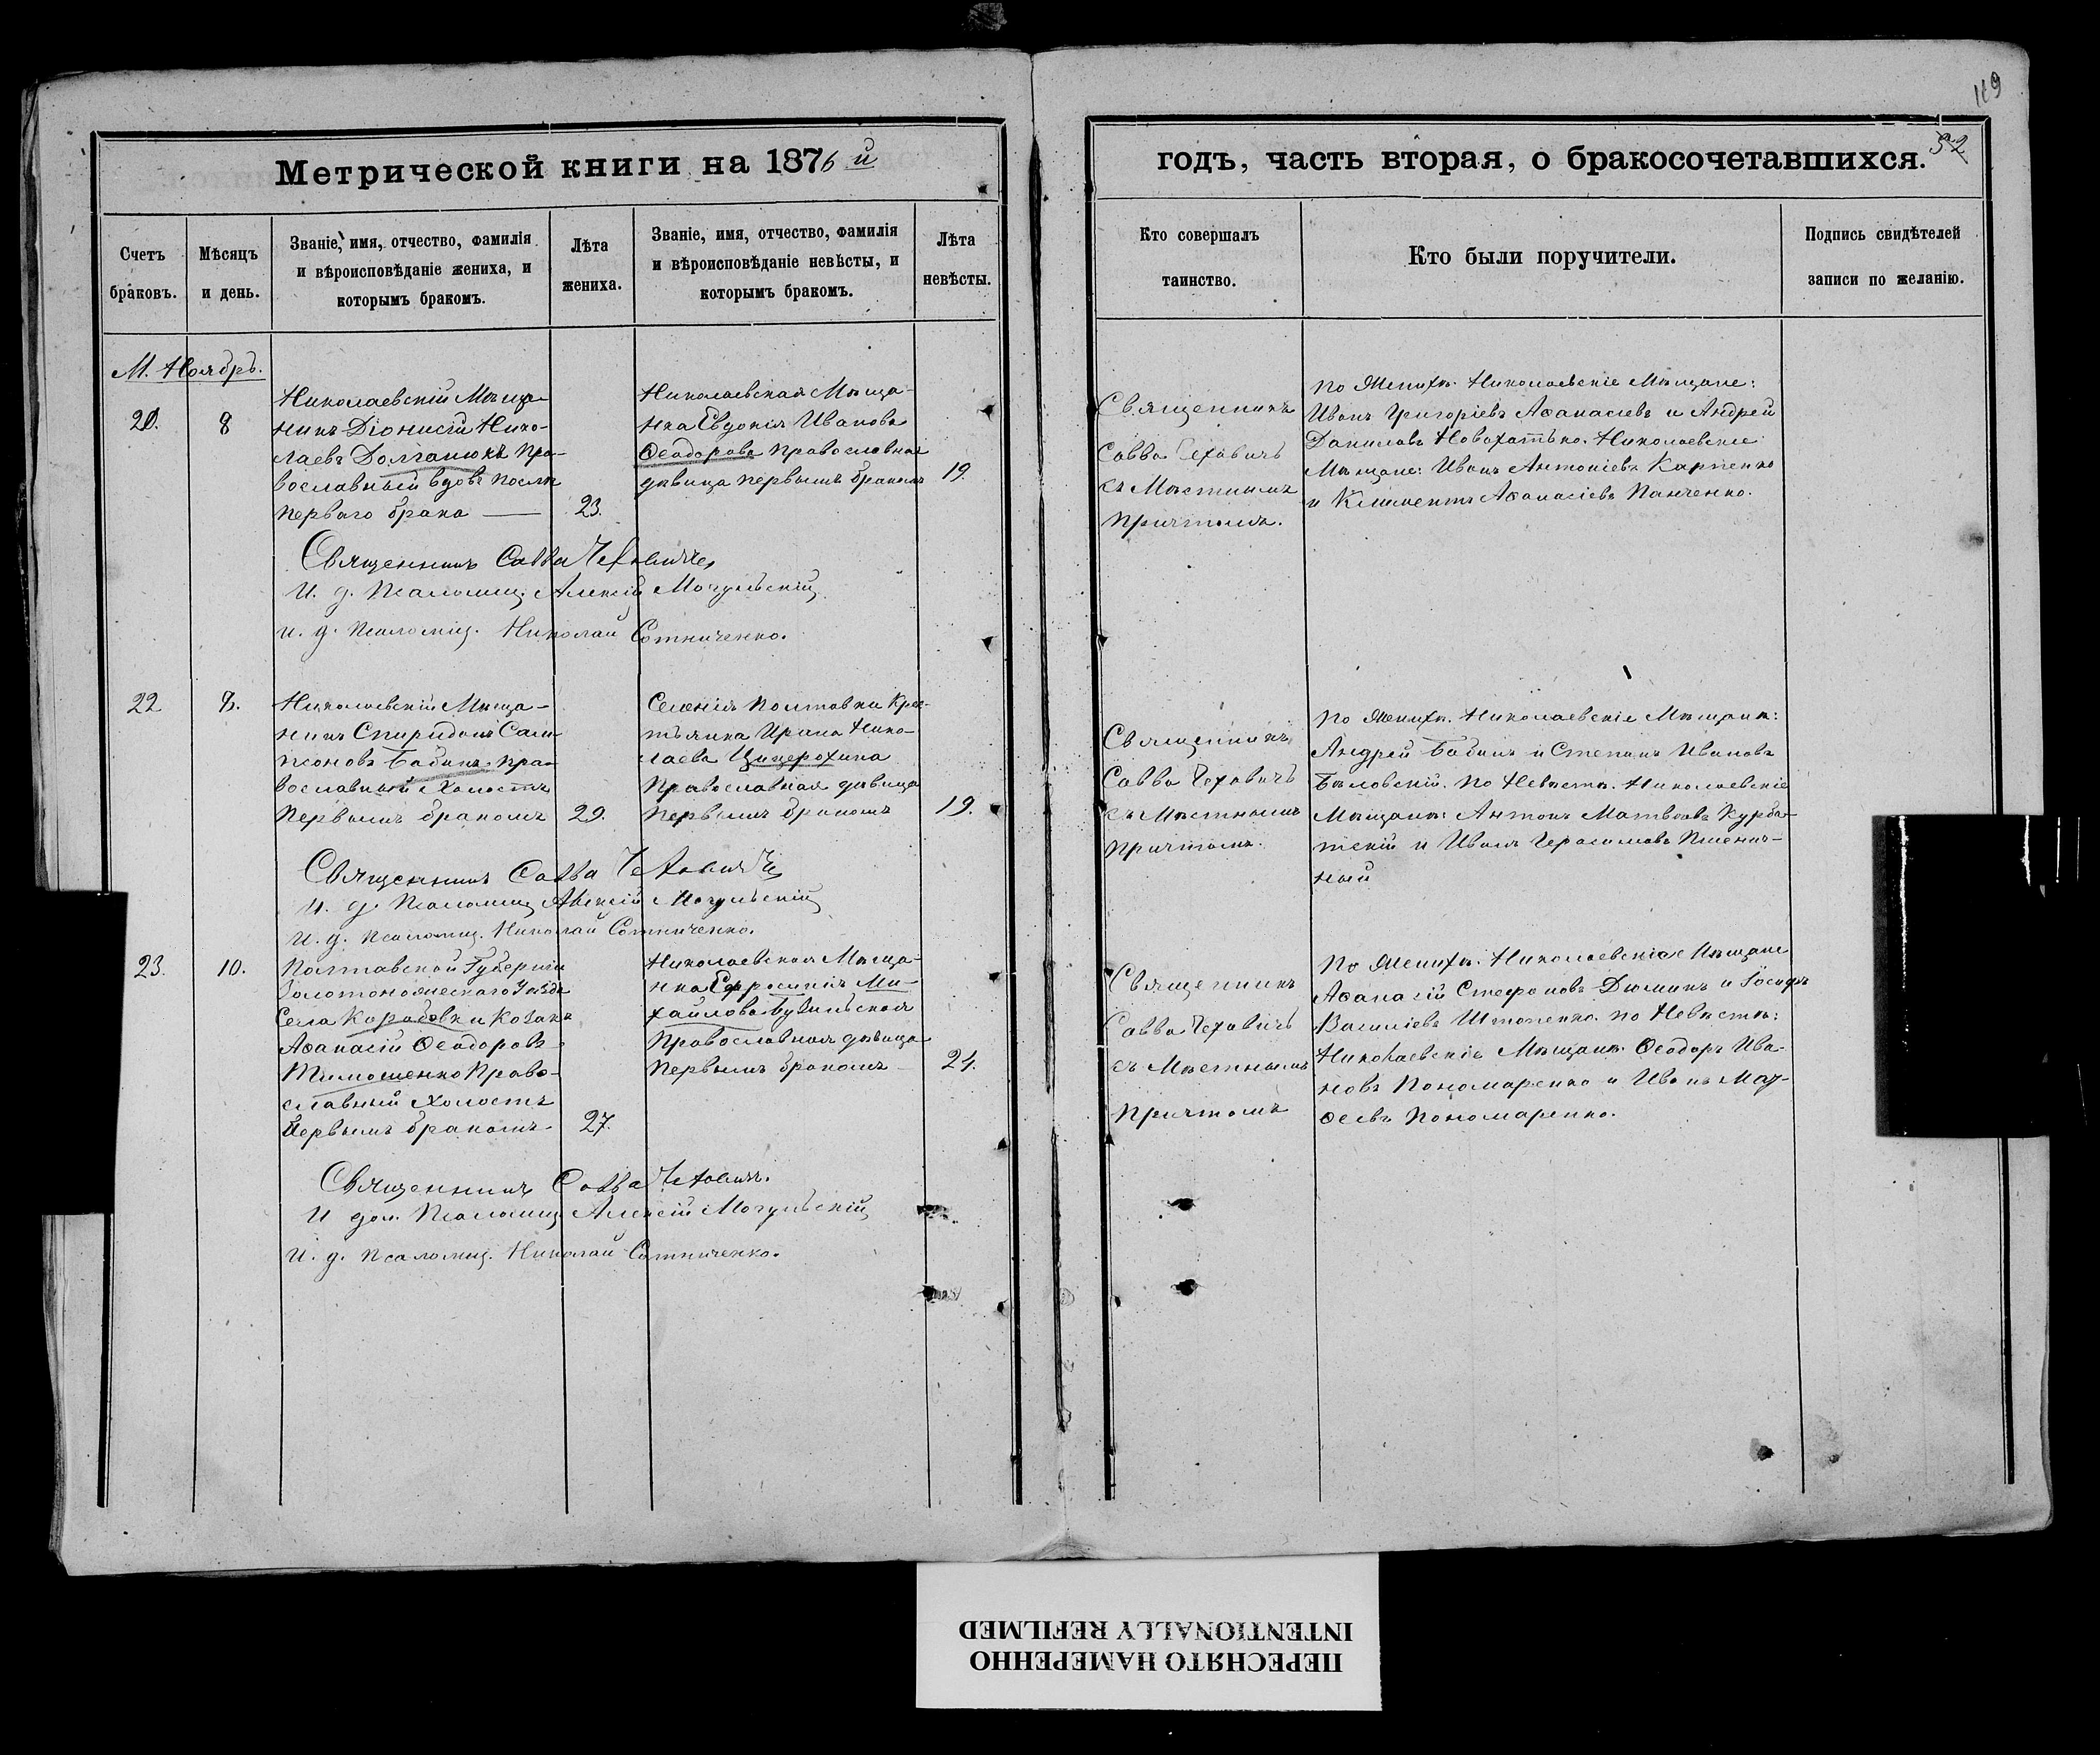 119
Метрической книги на 1876й
годъ, часть вторая, о бракосочетавшихся.
52
Счетъ браковъ.
Мѣсяцъ и день.
Званіе, имя, отчество, фамилія
и вѣроисповѣданіе жениха, и
которымъ бракомъ.
Лѣта
жениха.
Званіе, имя, отчество, фамилія
и вѣроисповѣданіе невѣсты, и
которымъ бракомъ.
Лѣта
невѣсты.
Кто совершалъ
таинство.
Кто были поручители.
Подпись свидѣтелей
записи по желанію.
М. Ноябрь.
8
Николаевскій Мѣща-
нинъ Діонисій Нико-
лаевъ Долганюкъ Пра-
вославный вдовъ послѣ
перваго брака
23.
Николаевская Мѣща-
нка Евдокія Иванова
Ѳеодорова православная
дѣвица первымъ бракомъ
19.
Священникъ
Савва Чеховичъ
съ Мѣстнымъ
Причтомъ.
По Женихѣ: Николаевскіе Мѣщане:
Иванъ Григоріевъ Аѳанасіевъ и Андрей
Даниловъ Новохатько. Николаевскіе
Мѣщане: Иванъ Антоніевъ Карпенко
и Климентъ Аѳанасіевъ Панченко.
Священникъ Савва Чеховичъ
И. д. Псаломщ. Алексій Могульскій
И. д. Псаломщ. Николай Сотниченко.
22
8.
Николаевскій Мѣща-
нинъ Спиридонъ Сам-
псоновъ Бабинъ пра-
вославный Холостъ
Первымъ бракомъ
29.
Селенія Полтавки Крес-
тьянка Ирина Нико-
лаева Цицерохина
Православная дѣвица
первымъ бракомъ
19.
Священникъ
Савва Чеховичъ
съ Мѣстнымъ
Причтомъ.
По Женихѣ. Николаевскіе Мѣщане:
Андрей Бабинъ и Степанъ Ивановъ
Бѣловскій. По Невѣстѣ. Николаевскіе
Мѣщане: Антонъ Матвѣевъ Курба-
тскій и Иванъ Герасимовъ Пшенич-
ный
Священникъ Савва Чеховичъ
И. д. Псаломщ Алексій Могульскій
И. д. Псаломщ. Николай Сотниченко.
23.
10.
Полтавской Губерніи
Золотоношескаго Уѣзда
Села Коробовки Козакъ
Аѳанасій Ѳеодоровъ
Тимошенко Право-
славный Холостъ
Первымъ бракомъ
27.
Николаевская Мѣща-
нка Ефросинія Ми-
хайлова
Православная дѣвица
Первымъ бракомъ
21.
Священникъ
Савва Чеховичъ
съ Мѣстнымъ
Причтомъ
По Женихѣ. Николаевскіе Мѣщане
Аѳанасій Стефановъ Дюминъ и Іосифъ
Василіевъ Штопенко. По Невѣстѣ:
Николаевскіе Мѣщане Ѳеодоръ Ива-
новъ Пономаренко и Иванъ Мат-
ѳеевъ Пономаренко.
Священникъ Савва Чеховичъ.
И дол. Псаломщ Алексій Могульскій
И. д. Псаломщ. Николай Сотниченко.
ПЕРЕСНЯТО НАМЕРЕННО
INTENTIONALLY REFILMED